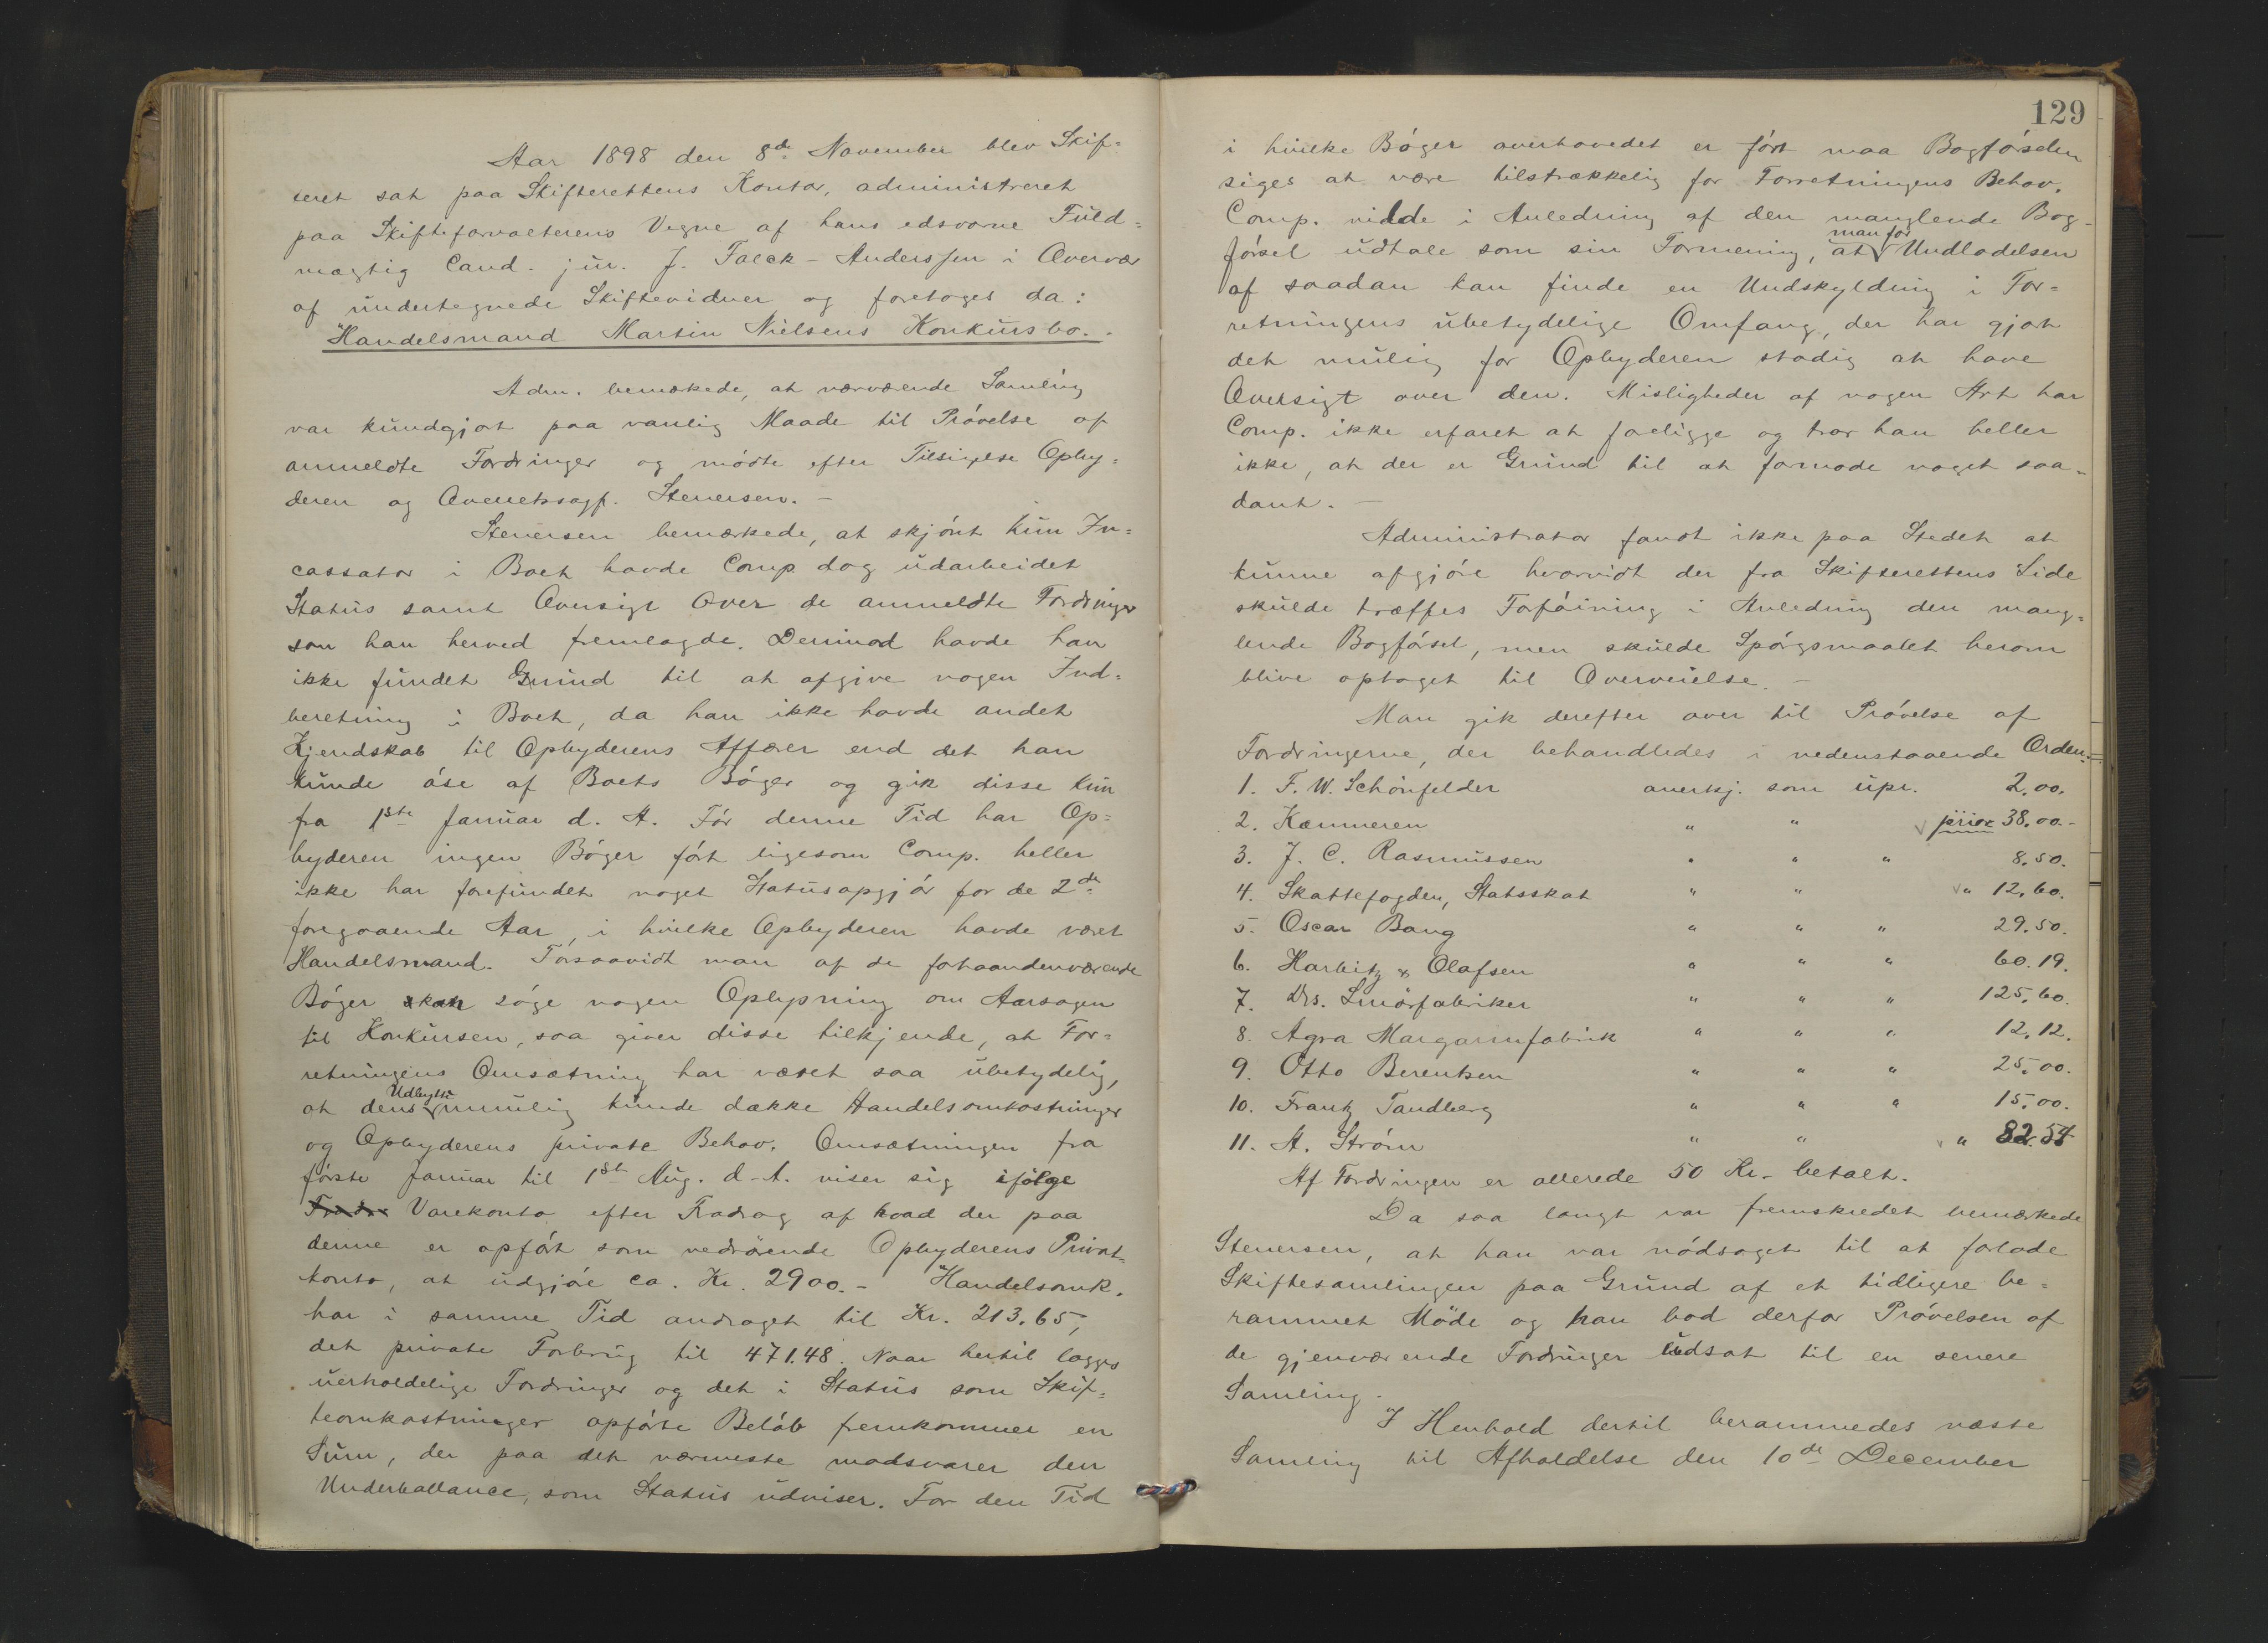 Aar 1898 den 8de November blev Skif=
teret sat paa Skifterettens Kontor, administreret
paa Skifteforvalterens Vegne af hans edsvorne Fuld=
mægtig Cand. jur. J. Faeck-Anderssen i Overvær
af undertegnede Skiftevidner og foretoges da:
Handelsmand Martin Nielsens Konkursbo.
Adm. bemærkede, at nærværende Samling
var kundgjort paa vanlig Maade til Prövelse af
anmeldte Fordringer og mödte efter Tilsigelse Opby=
deren og Overretssagf. Stenersen. -
Stenersen bemærkede, at skjönt kun In=
cassator i Boet havde Comp. dog udarbeidet
Status samt Oversigt over de anmeldte Fordringer
som han herved fremlagde. Derimod havde han
ikke fundet Grund til at afgive nogen Ind=
beretning i Boet, da han ikke havde andet
Kjendskab til Opbyderens Affærer end det han
kunde öse af Boets Böger og gik disse kun
fra 1ste Januar d. A. För denne Tid har Op=
byderen ingen Böger fört ligesom Comp. heller
ikke har forefundet noget Statusopgjör for de 2de
foregaaende Aar, i hvilke Opbyderen havde været
Handelsmand. Forsaavidt man af de forhaandenværende
Böger kan söge nogen Oplysning om Aarsagen
til Konkursen, saa giver disse tilkjende, at For=
retningens Omsætning har været saa ubetydelig,
at dens Udbytte umulig kunde dække Handelsomkostninger
og Opbyderens private Behov. Omsætningen fra
förste Januar til 1st Aug. d. A. viser sig ifölge
Varekonto efter Fradrag af hvad der paa
denne er opfört som vedrörende Opbyderens Privat
konto, at udgjöre ca. Kr. 2900.- Handelsomk.
har i samme Tid andraget til Kr. 213.65,
det private Forbrug til 471.48. Naar hertil lægges
uerholdelige Fordringer og det i Status som Skif=
teomkostninger opförte Belöb fremkommer en
Sum, der paa det nærmeste modsvarer den
Underballance, som Status udviser. For den Tid
129
i hvilke Böger overhovedet er fört maa Bogförselen
siges at være tilstrækkelig for Forretningens Behov.
Comp. vilde i Anledning af den manglende Bog-
försel udtale som sin Formening, at man for Undladelsen
af saadan kan finde en Undskyldning i For=
retningens ubetydelige Omfang, der har gjort
det mulig for Opbyderen stadig at have
Oversigt over den. Misligheder af nogen Art har
Comp. ikke erfaret at foreligge og tror han heller
ikke, at der er Grund til at formode noget saa=
dant. -
Administrator fandt ikke paa Stedet at
kunne afgjöre hvorvidt der fra Skifterettens Side
skulde træffes Forföining i Anledning den mang=
lende Bogförsel, men skulde Spörgsmaalet herom
blive optaget til Overveielse. -
Man gik derefter over til Prövelse af
Fordringerne, der behandledes i nedenstaaende Orden:
1. F. W. Schönfelder anerkj. som upr. 2.00.
2. Kæmneren " " prior 38.00.-
3. J. C. Rasmussen " " " 8.50.
4. Skattefogden, Statsskat " " " 12.60.
5. Oscar Bang " " " 29.50.
6. Harbitz & Olafsen " " " 60.19.
7. Drs. Smörfabriker " " " 125.60.
8. Agra Margarinfabrik " " " 12.12.
9. Otto Berentsen " " " 25.00.
10. Frantz Tandberg " " " 15.00.
11. A. Ström " " " 82.54
Af Fordringen er allerede 50 Kr. betalt.
Da saa langt var fremskredet bemærkede
Stenersen, at han var nödsaget til at forlade
Skiftesamlingen paa Grund af et tidligere be=
rammet Möde og han bad derfor Prövelsen af
de gjenværende Fordringer udsat til en senere
Samling.
I Henhold dertil berammedes næste
Samling til Afholdelse den 10de December